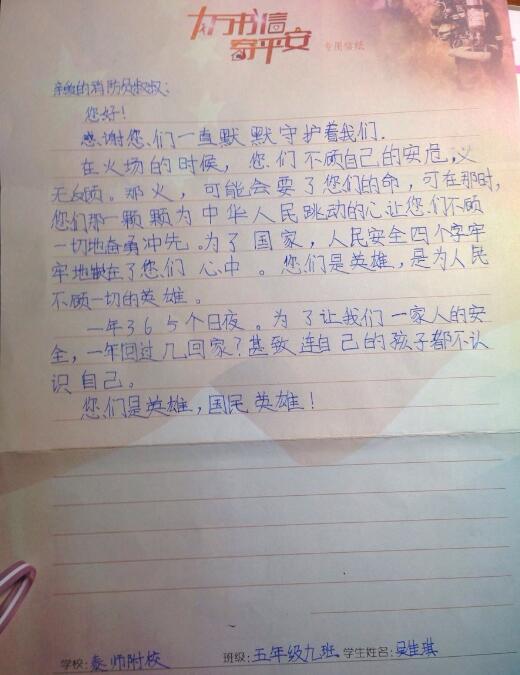 万书信
寄平安
专用信纸
亲爱的消防员叔叔:
您好!
感谢您们一直默默守护着我们.
在火场的时候,您们不顾自己的安危,义
无反顾。那火,可能会要了您们的命,可在那时,
您们那一颗颗为中华人民跳动的心让您们不顾
一切地奋勇冲先。为了国家,人民安全四个字牢
牢地在了您们心中。您们是英雄,是为人民
不顾一切的英雄。
一年365个日夜。为了让我们一家人的安
全,一年回过几回家?甚致连自己的孩子都不认
识自己。
您们是英雄,国民英雄!
学校:泰师附校 班级:五年级九班 学生姓名:吴佳琪